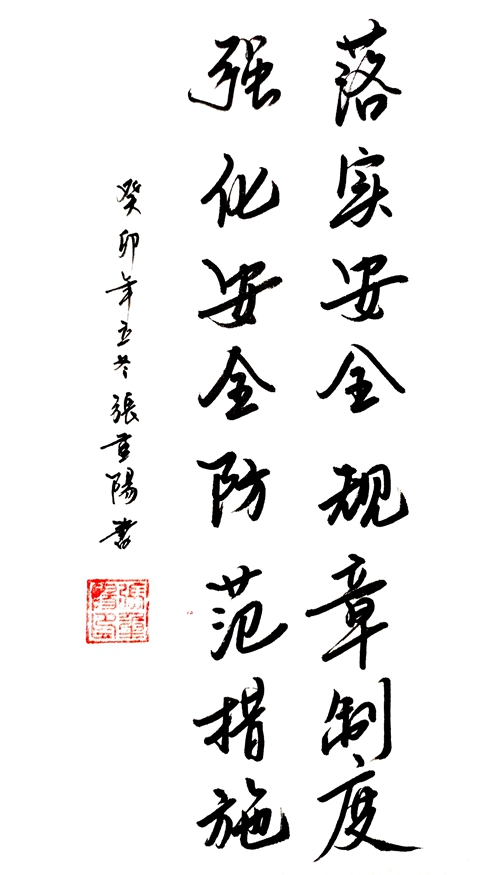 落实安全规章制度
强化安全防范措施
癸卯年立冬張重陽書